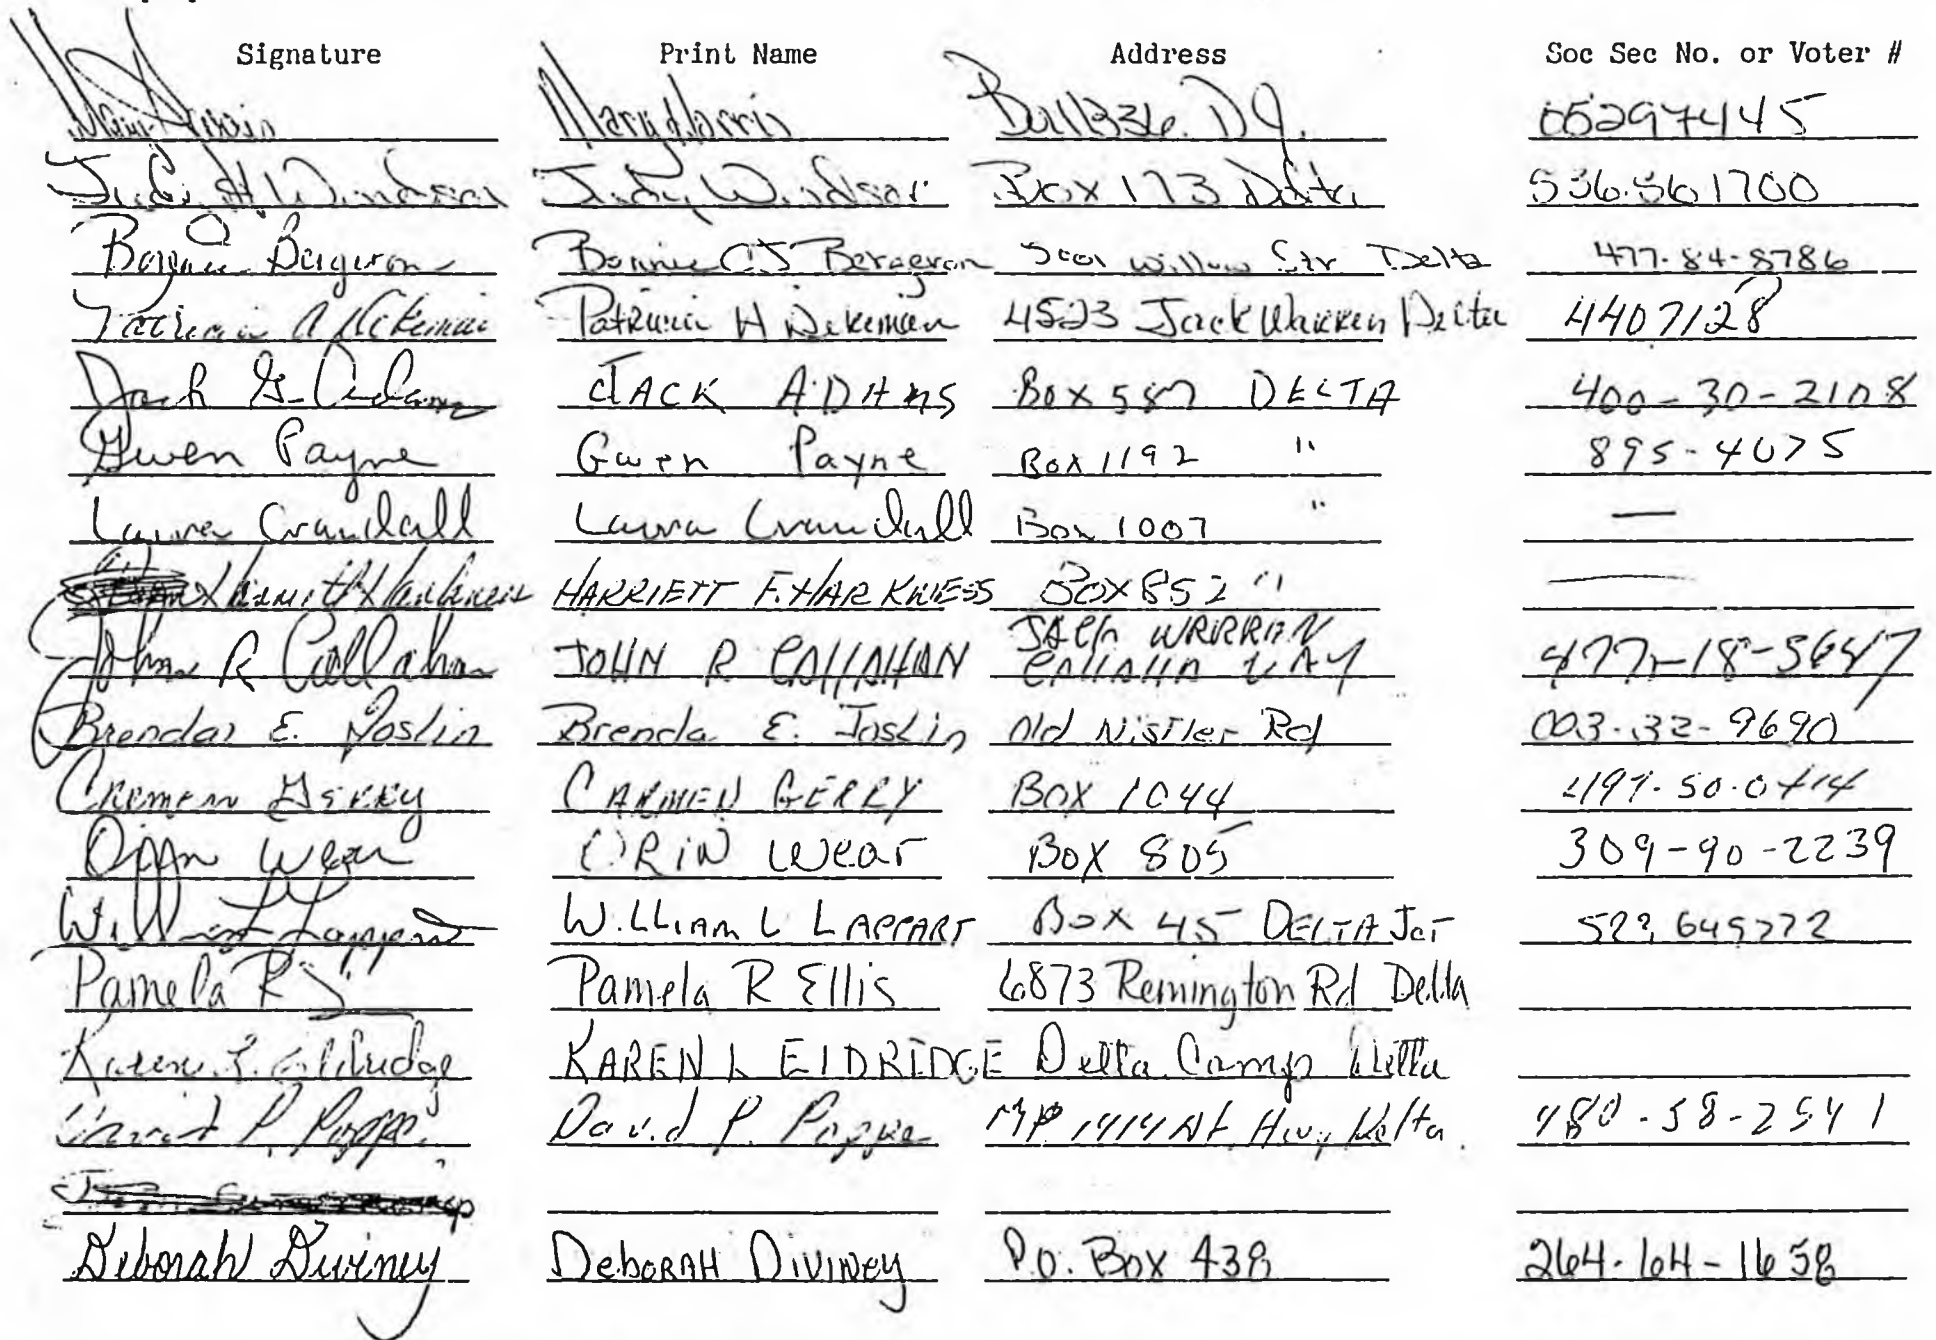 Signature Print Name Address Soc Sec No. or Voter #
Mary Harris Mary Harris Box 1336 D.J. 05297445
Judy A Windsor Judy Windsor Box 173 Delta 536.561700
Bonnie Bergeron Bonnie CJ Bergeron Willow Cir Delta 477-84-8786
Patricia A Patricia A 4523 Jack Warren Delta 4407128
Jack G. Adams JACK ADAMS Box 587 DELTA 400-30-2108
Gwen Payne Gwen Payne Box 1192 " 895-4075
Laura Crandall Laura Crandall Box 1007 " —
Harriett Harkness HARRIETT F. HARKNESS Box 852 " —
John R Callahan JOHN R CALLAHAN JACK WARRRN CALLAHA WAY 477-18-5647
Brenda E. Joslin Brenda E. Joslin Old Nistler Rd 003-32-9690
Carmen Gerry CARMEN GERRY BOX 1044 50
Orin Wear ORIN Wear Box 805 309-90-2239
William L Lappart WILLIAM L LAPPART Box 45 DELTA Jct
Pamela R Pamela R Ellis 6873 Remington Rd Delta
Karen L. Eldridge KAREN L ELDRIDGE Delta Camp Delta
David P. Poppe David P. Poppe MP 1414 Hwy Delta. 480-58-2541
Deborah Diviney DeboRAH DIVINEY P.O. Box 438 264-64-1658